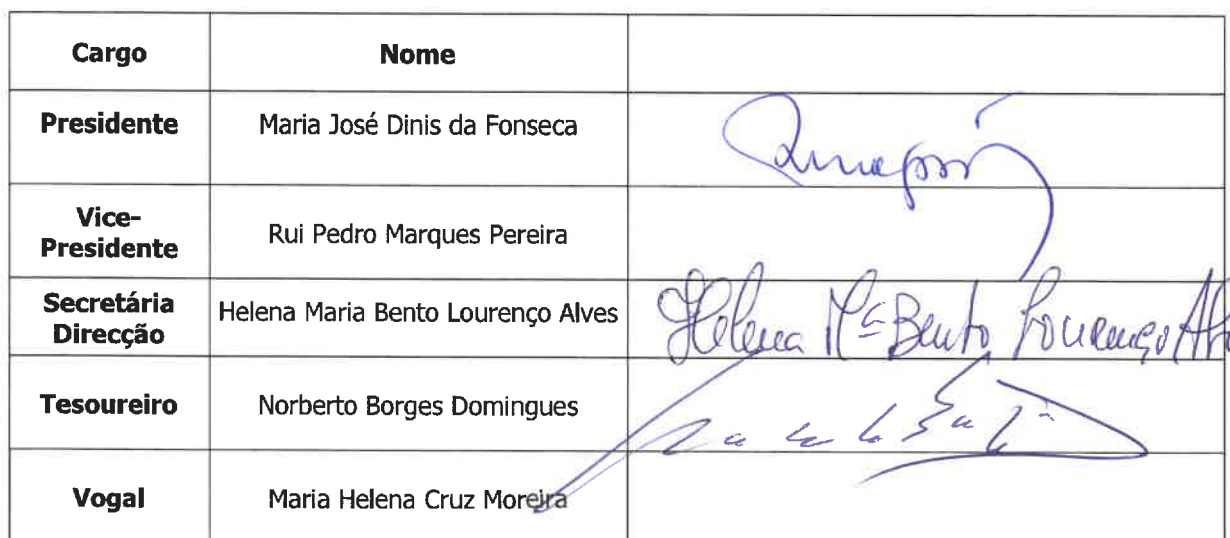 Cargo Nome
Presidente Maria José Dinis da Fonseca
Vice-
Presidente Rui Pedro Marques Pereira
Secretária
Direcção Helena Maria Bento Lourenço Alves Helena Mª Bento Lourenço Alv
Tesoureiro Norberto Borges Domingues
Vogal Maria Helena Cruz Moreira